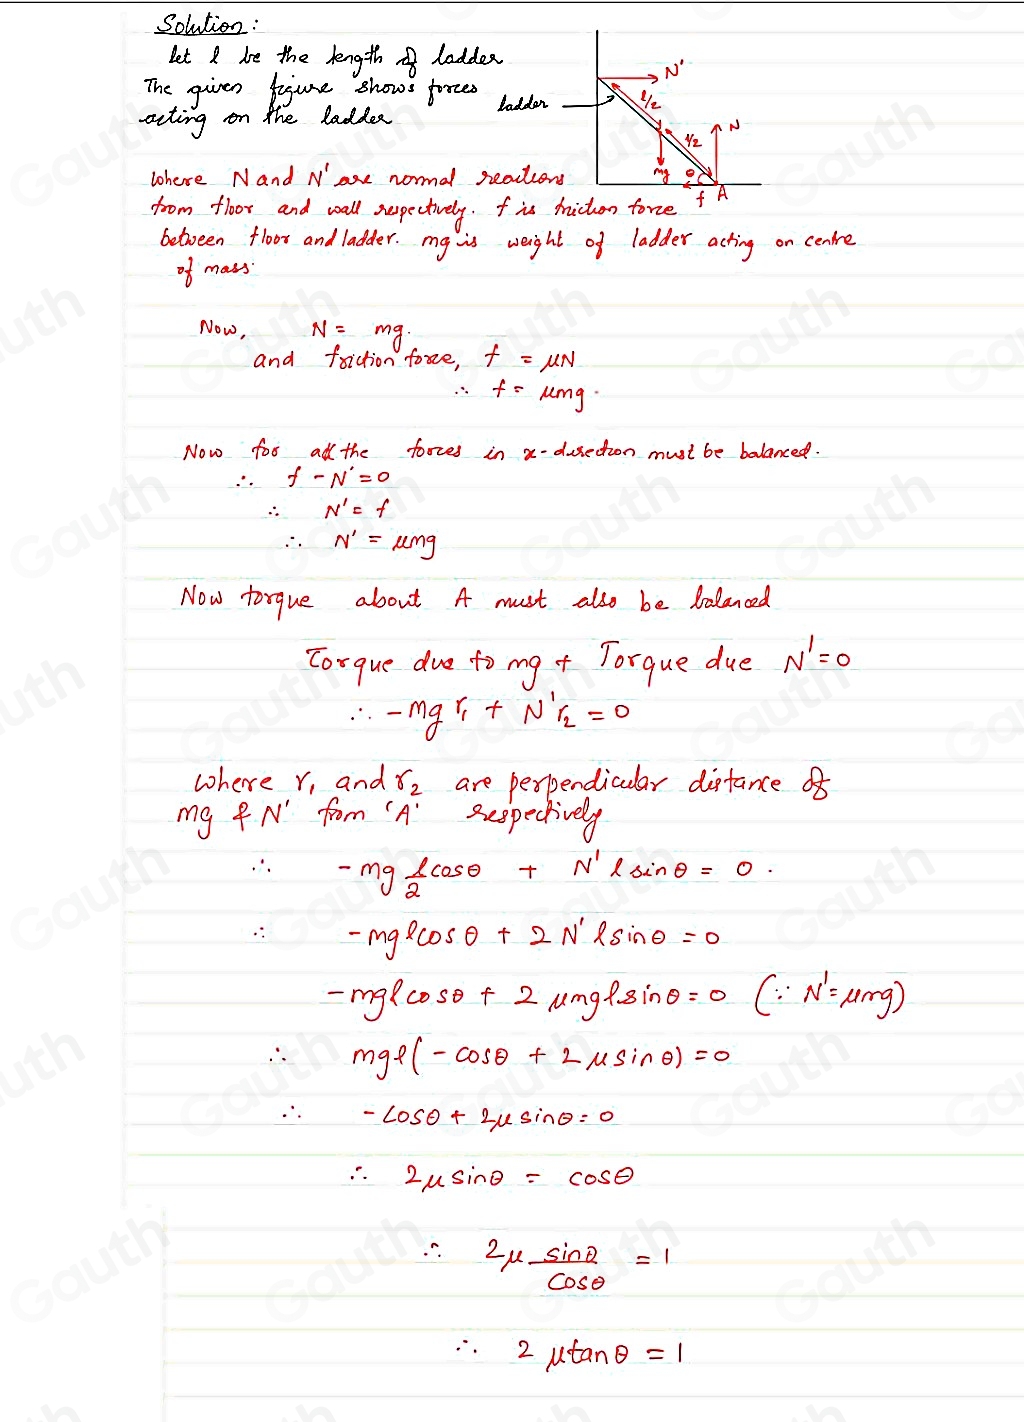 Solution:
let l be the length of ladder
The given figure shows forces
acting on the ladder
ladder
N'
l/2
l/2
N
mg
θ
f
A
Where N and N' are normal reactions
from floor and wall respectively. f is friction force
between floor and ladder. mg is weight of ladder acting on centre
of mass.
Now, N = mg.
and friction force, f = μN
∴ f = μmg.
Now for all the forces in x-direction must be balanced.
∴ f - N' = 0
∴ N' = f
∴ N' = μmg
Now torque about A must also be balanced
Torque due to mg + Torque due N' = 0
∴ -mg r₁ + N' r₂ = 0
where r₁ and r₂ are perpendicular distance of
mg & N' from 'A' respectively
∴ -mg l/2 cosθ + N' l sinθ = 0.
∴ -mglcosθ + 2N' lsinθ = 0
-mglcosθ + 2μmglsinθ = 0 (∵ N' = μmg)
∴ mgl(-cosθ + 2μsinθ) = 0
∴ -cosθ + 2μsinθ = 0
∴ 2μsinθ = cosθ
∴ 2μ sinθ/cosθ = 1
∴ 2μtanθ = 1
Gauth